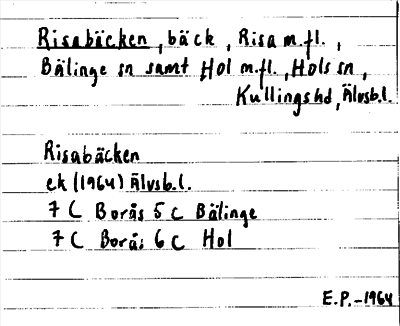 Risabäcken, bäck, Risa m.fl.,
Bälinge sn samt Hol m.fl., Hols sn,
Kullings hd, Älvsb.l.
Risabäcken
ek (1964) Älvsb.l.
7 C Borås 5 c Bälinge
7 C Borås 6 c Hol
E.P. - 1964